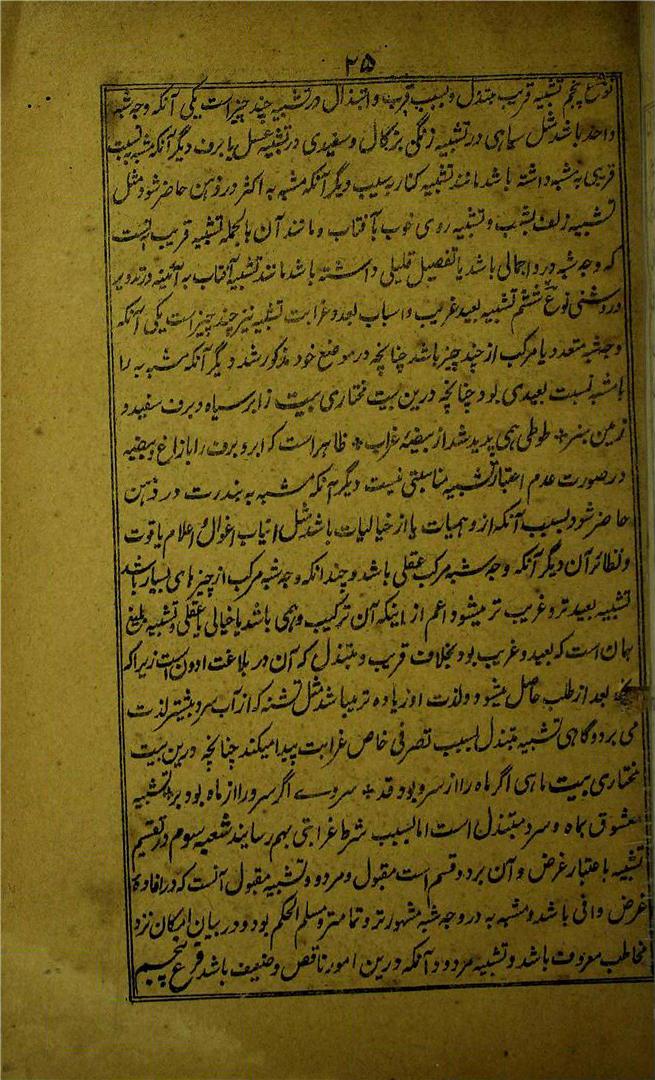 ۲۵
نوع پنجم تشبیه قریب مبتذل و سبب قرب و ابتذال در تشبیه چند چیز است یکی آنکه وجه شبه
واحد باشد مثل سیاهی در تشبیه زنگی بزگال و سفیدی در تشبیه عسل یا برف دیگر آنکه مشبه به نسبت
قریبی بمشبه داشته باشد مانند تشبیه کنار بسیب دیگر آنکه مشبه به اکثر در ذهن حاضر شود مثل
تشبیه زلف بشب و تشبیه روی خوب بآفتاب و مانند آن بالجمله تشبیه قریب آنست
که وجه شبه درو اجمالی باشد یا تفصیل قلیلی داشته باشد مانند تشبیه آفتاب به آئینه در تدویر
و روشنی نوع ششم تشبیه بعید غریب و اسباب بعد و غرابت تشبیه نیز چند چیز است یکی آنکه
وجه شبه متعدد یا مرکب از چند چیز باشد چنانچه در موضع خود مذکور شد دیگر آنکه مشبه به را
بامشبه نسبت بعیدی بود چنانچه درین بیت مختاری بیت ز ابر سیاه و برف سفید و
زمین سبز * طوطی همی پدید شد از بیضهٔ غراب * ظاهر است که ابر و برف را بازاغ و بیضه
در صورت عدم اعتبار تشبیه مناسبتی نیست دیگر آنکه مشبه به بندرت در ذهن
حاضر شود بسبب آنکه از وهمیات یا از خیالیات باشد مثل انیاب اغوال و اعلام یاقوت
و نظائر آن دیگر آنکه وجه شبه مرکب عقلی باشد و چندانکه وجه شبه مرکب از چیزهای بسیار باشد
تشبیه بعیدتر و غریب تر میشود اعم از اینکه آن ترکیب وهمی باشد یا خیالی یا عقلی و تشبیه بلیغ
همان است که بعید و غریب بود بخلاف قریب و مبتذل که آن در بلاغت ادون است زیرا که
بعد از طلب حاصل میشود ولذت او زیاده تر میباشد مثل تشنه که از آب سرد بیشتر لذت
می برد و گاهی تشبیه مبتذل بسبب تصرفی خاص غرابت پیدا میکند چنانچه درین بیت
مختاری بیت ماهی اگر ماه را از سرو بود قد * سروے اگر سرو را از ماه بود بر * تشبیه
معشوق بماه و سرو مبتذل است اما بسبب شرط غرابتی بهم رسانید شعبه سوم در تقسیم
تشبیه با عتبار غرض و آن بر دو قسم است مقبول و مردود تشبیه مقبول آنست که در افادهٔ
غرض وافی باشد و مشبه به در وجه شبه مشهورتر و تمامتر و مسلم الحکم بود و در بیان امکان نزد
مخاطب معروف باشد و تشبیه مردود آنکه درین امور ناقص و ضعیف باشد فرع پنجم